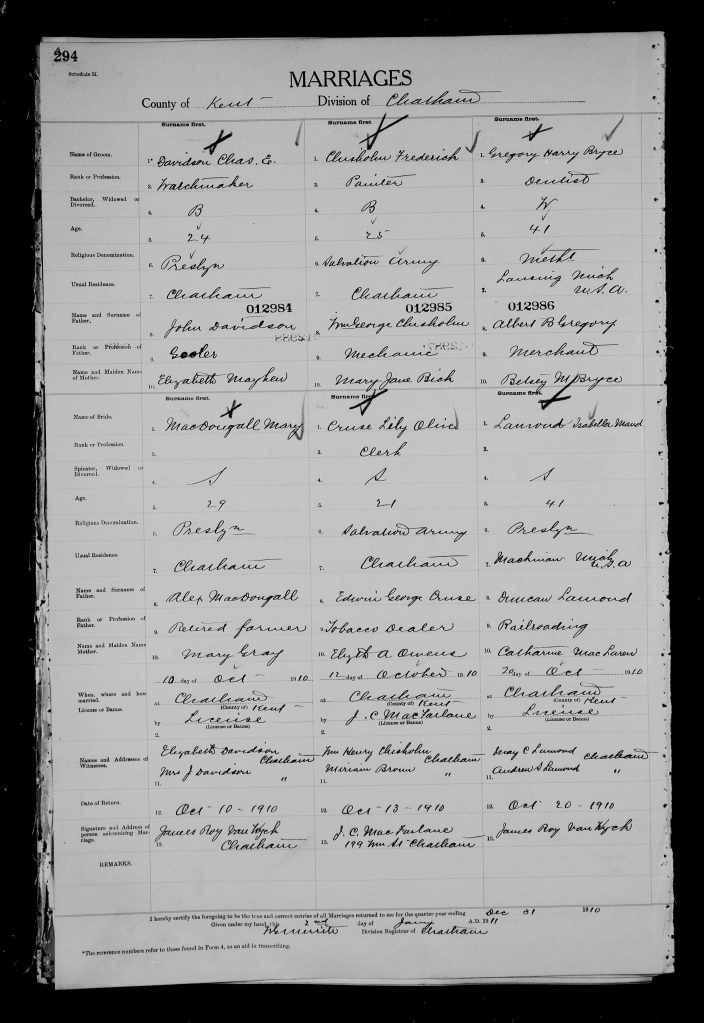 294
Schedule B.
MARRIAGES
County of Kent Division of Chatham
Surname first. Surname first. Surname first.
Name of Groom. 1. Davidson Chas. E. 1. Chisholm Frederick 1. Gregory Harry Bryce
Rank or Profession. 2. Watchmaker 2. Painter 2. Dentist
Bachelor, Widowed or Divorced. 4. B 4. B 4. W
Age. 5. 24 5. 25 5. 41
Religious Denomination. 6. Presbyn 6. Salvation Army 6. Metht
Usual Residence. 7. Chatham 7. Chatham 7. Lansing Mich U.S.A.
012984 012985 012986
Name and Surname of Father. 8. John Davidson 8. Wm George Chisholm 8. Albert B Gregory
Rank or Profession of Father. 9. 9. Mechanic 9. Merchant
Name and Maiden Name of Mother. 10. Elizabeth Mayhew 10. Mary Jane 10. Betsey M Bryce
Surname first. Surname first. Surname first.
Name of Bride. 1. MacDougall Mary 1. Cruse Lily Olive 1. Lamond Isabella Maud
Rank or Profession. 2. 2. Clerk 2.
Spinster, Widowed or Divorced. 4. S 4. S 4. S
Age. 5. 29 5. 21 5. 41
Religious Denomination. 6. Presbyn 6. Salvation Army 6. Presbyn
Usual Residence. 7. Chatham 7. Chatham 7. Mich U.S.A
Name and Surname of Father. 8. Alex MacDougall 8. Edwin George Cruse 8. Duncan Lamond
Rank or Profession of Father. 9. Retired farmer 9. Tobacco Dealer 9. Railroading
Name and Maiden Name Mother. 10. Mary Gray 10. Elizth A Owens 10. Catharine MacLaren
10 day of Oct 1910 12 day of October 1910 20 day of Oct 1910
When, where and how married. at Chatham at Chatham at Chatham
(County of) Kent (County of) Kent (County of) Kent
License or Banns. by License by J. C. MacFarlane by License
(License or Banns) (License or Banns) (License or Banns)
Names and Addresses of Witnesses. Elizabeth Davidson Chatham Wm Henry Chisholm Chatham May C Lamond Chatham
11. Mrs J Davidson " 11. Miriam Brown " 11. Andrew S Lamond "
Date of Return. 12. Oct 10 - 1910 12. Oct - 13 - 1910 12. Oct 20 - 1910
Signature and Address of person solemnizing Marriage. 13. James Roy Van Wyck Chatham 13. J. C. MacFarlane 199 Wm St Chatham 13. James Roy Van Wyck
REMARKS.
I hereby certify the foregoing to be the true and correct entries of all Marriages returned to me for the quarter year ending Dec 31 1910
Given under my hand, this 2nd day of Jany A.D. 1911
Division Registrar of Chatham
*The reference numbers refer to those found in Form 4, as an aid in transcribing.